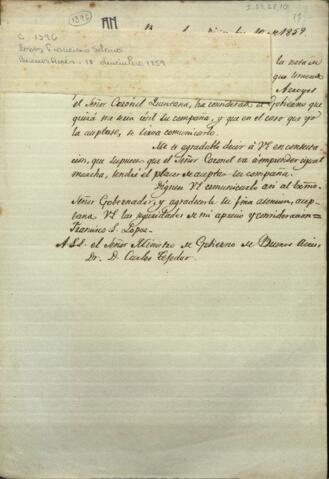 1396
AM
I-29,28,10
13
C 1396
López Francisco Solano
Buenos Aires - 10 diciembre 1859
10 de 1859
la nota de
que temendo
Arroyos
el Señor Coronel Quintana, ha considerado el Gobierno que
quizá me sería útil su compañía, y que en el caso que yo
la aceptase, se sirva comunicarlo.
Me es agradable decir á VE en contesta-
cion, que supuesto que el Señor Coronel va á emprender igual
marcha, tendré el placer de aceptar su compañía.
Dígnese VE comunicarlo así al Exmo.
Señor Gobernador, y agradecerle su fina atencion, acep-
tando VE las seguridades de mi aprecio y consideracion=
Francisco S. Lopez=
A S.E. el Señor Ministro de Gobierno de Buenos Aires,
Dr. D. Carlos Tejedor.